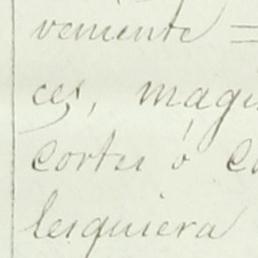 veniente =
ces, magis
cortes ó c
lesquiera